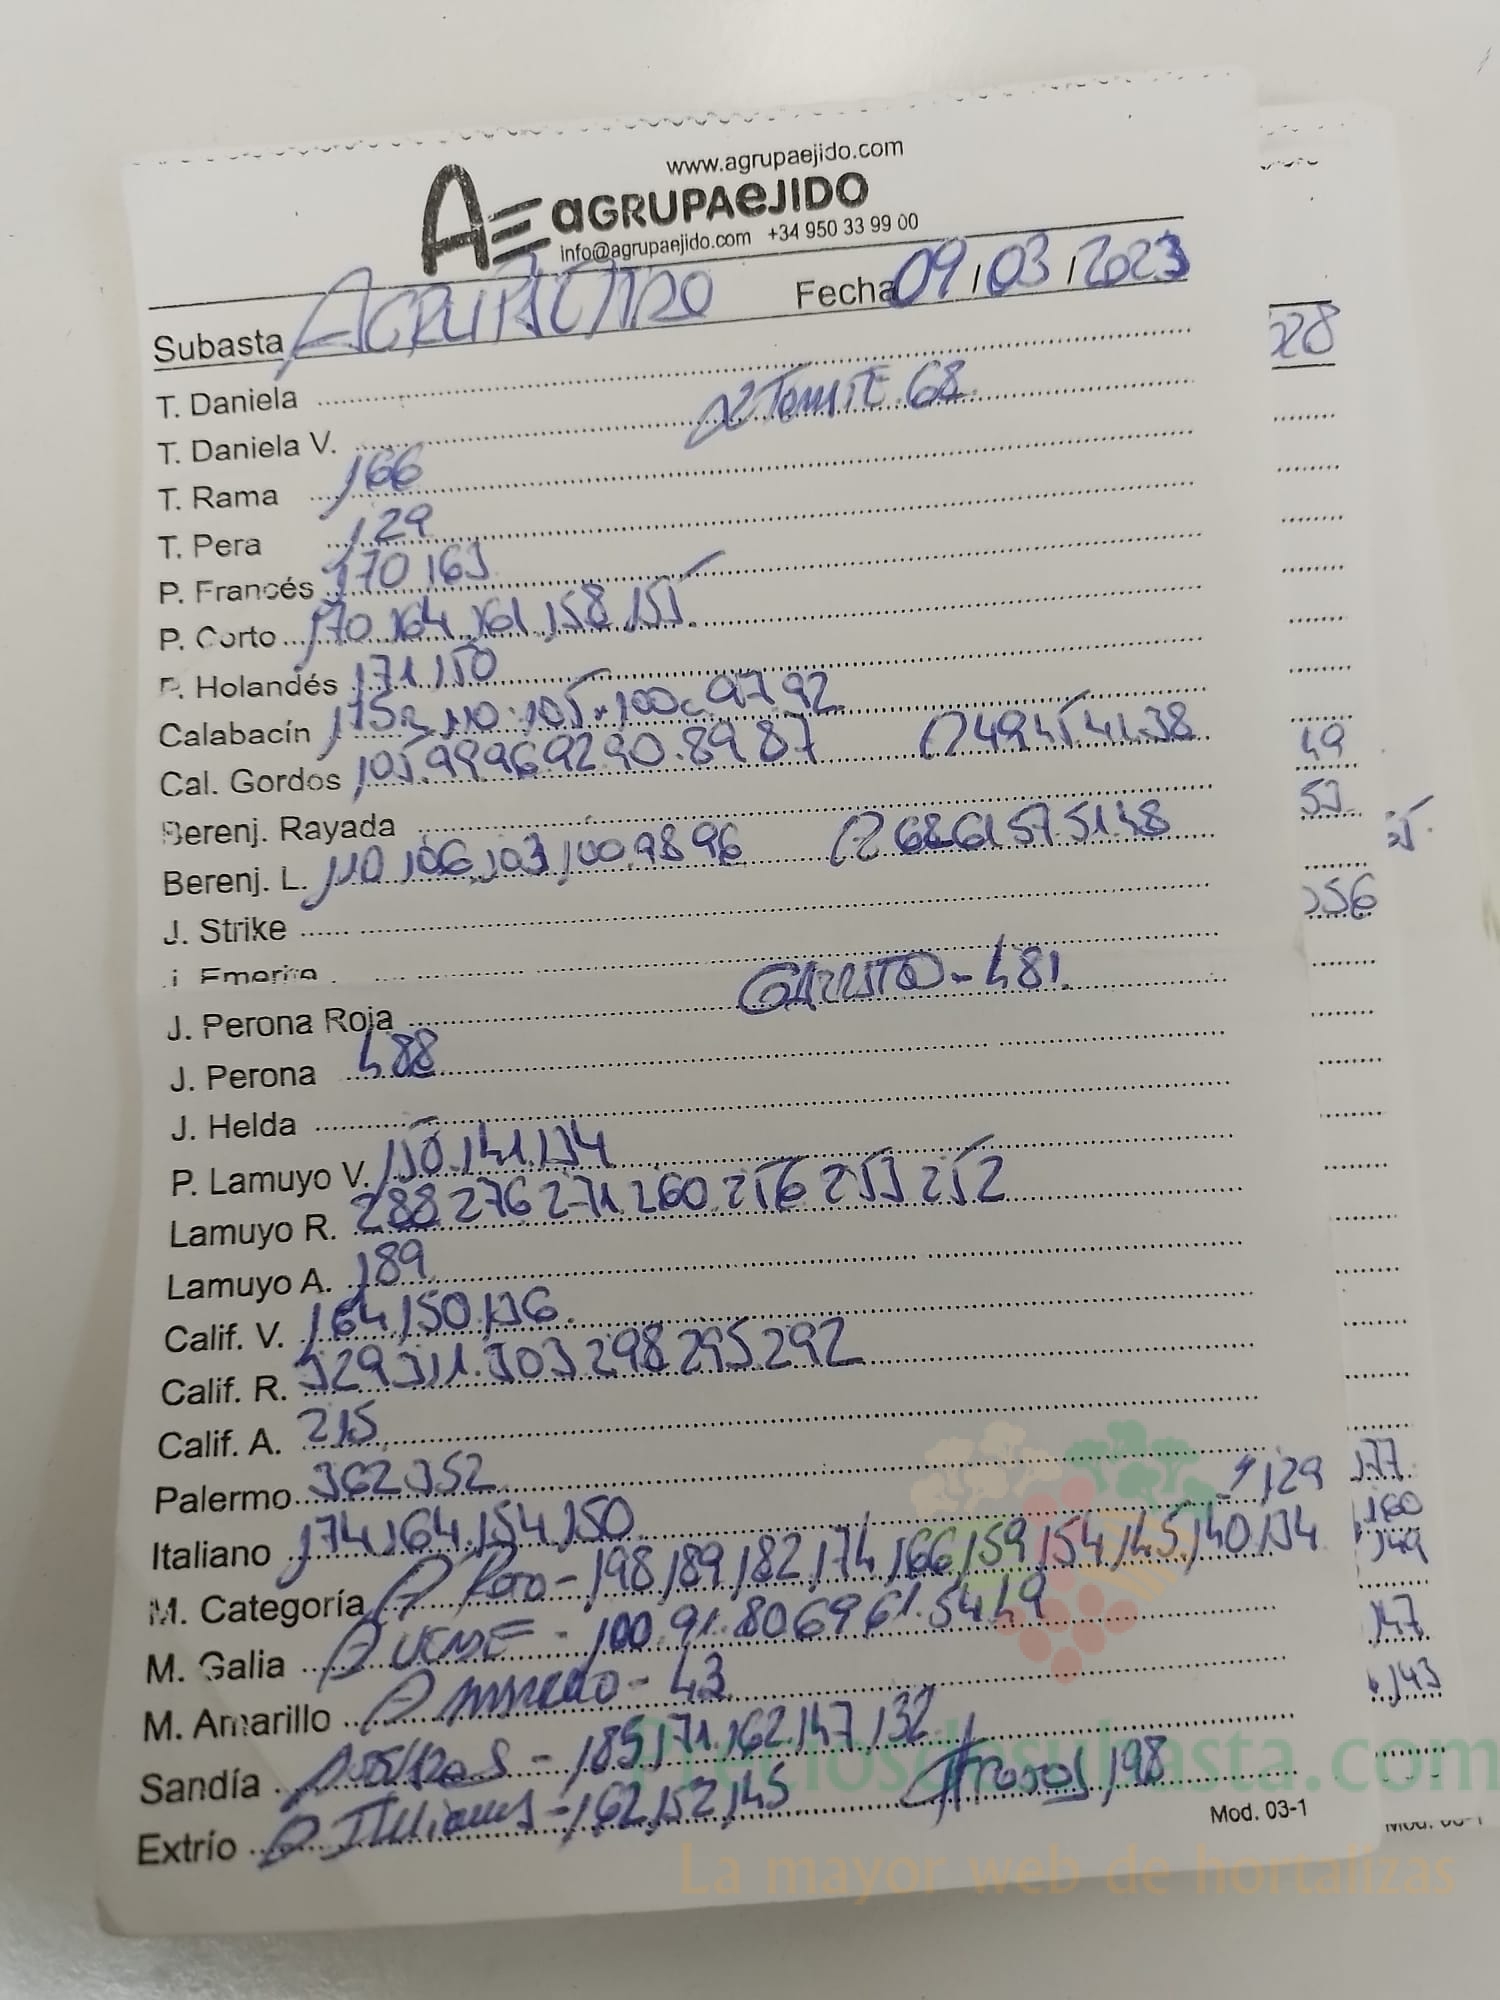 www.agrupaejido.com
AE aGRUPAeJIDO
info@agrupaejido.com +34 950 33 99 00
Subasta AGRUPAEJIDO Fecha 09/03/2023
T. Daniela
T. Daniela V. TOMATE 68
T. Rama 166
T. Pera 129
P. Francés 170 163
P. Corto 170 164 161 158 155
P. Holandés 171 150
Calabacín 110 105 100 97 92
Cal. Gordos 105 99 96 92 90 89 87 49 45 41 38
Berenj. Rayada
Berenj. L. 110 106 103 100 98 96 68 61 57 51 48
J. Strike
J. Emerite
J. Perona Roja GARRAFÓ - 481
J. Perona 488
J. Helda
P. Lamuyo V. 150 141 134
Lamuyo R. 288 276 271 260 256 253 252
Lamuyo A. 189
Calif. V. 164 150 136
Calif. R. 329 311 303 298 295 292
Calif. A. 215
Palermo 362 352
Italiano 174 164 154 150 129
M. Categoría Rojo - 198 189 182 174 166 159 154 145 140 134
M. Galia VERDE - 100 91 80 69 61 54 49
M. Amarillo AMARILLO - 43
Sandía 185 171 162 147 132
Extrío ITALIANOS - 162 152 145 198
Mod. 03-1
28
49
53
56
177
160
149
147
143
Preciosdesubasta.com
La mayor web de hortalizas